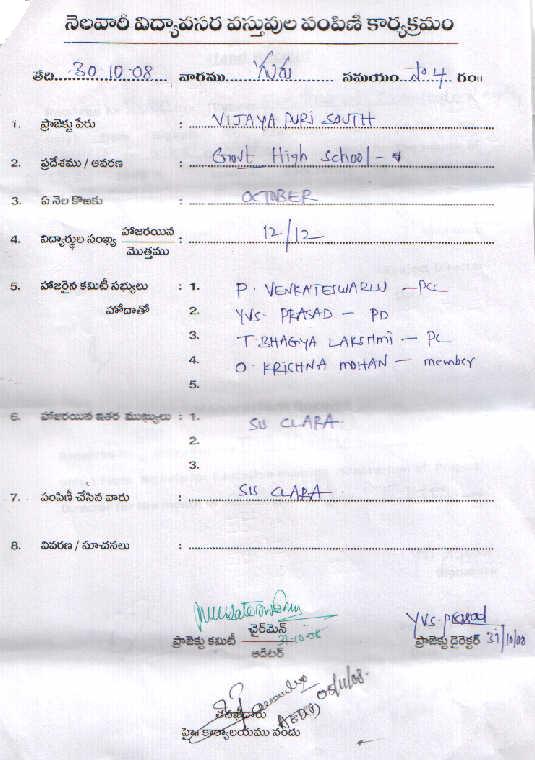 నెలవారీ విద్యావసర వస్తువుల పంపిణీ కార్యక్రమం
తేది... 30.10.08 వారము... గురు సమయం.. సా 4 గం॥
1. ప్రాజెక్టు పేరు : VIJAYA PURI SOUTH
2. ప్రదేశము / ఆవరణ : Govt High School -
3. ఏ నెల కొఱకు : OCTOBER
4. విద్యార్థుల సంఖ్య హాజరయిన : 12/12
మొత్తము
5. హాజరైన కమిటీ సభ్యులు : 1. P. VENKATESWARLU - PCC
హోదాతో 2. YVS. PRASAD - PD
3. T. BHAGYA LAKSHMI - PC
4. O. KRICHNA MOHAN - member
5.
6. హాజరయిన ఇతర ముఖ్యులు : 1. SIS CLARA
2.
3.
7. పంపిణీ చేసిన వారు : SIS CLARA
8. వివరణ / సూచనలు :
చైర్‌మెన్ YVS. prasad
ప్రాజెక్టు కమిటీ 31-10-08 ప్రాజెక్టు డైరెక్టర్ 31/10/08
ఆడిటర్
05/11/08.